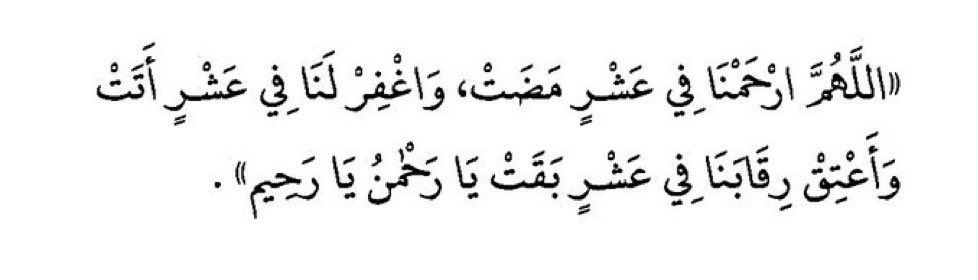 «اللَّهُمَّ ارْحَمْنَا فِي عَشْرٍ مَضَتْ، وَاغْفِرْ لَنَا فِي عَشْرٍ أَتَتْ
وَأَعْتِقْ رِقَابَنَا فِي عَشْرٍ بَقَتْ يَا رَحْمٰنُ يَا رَحِيم» .